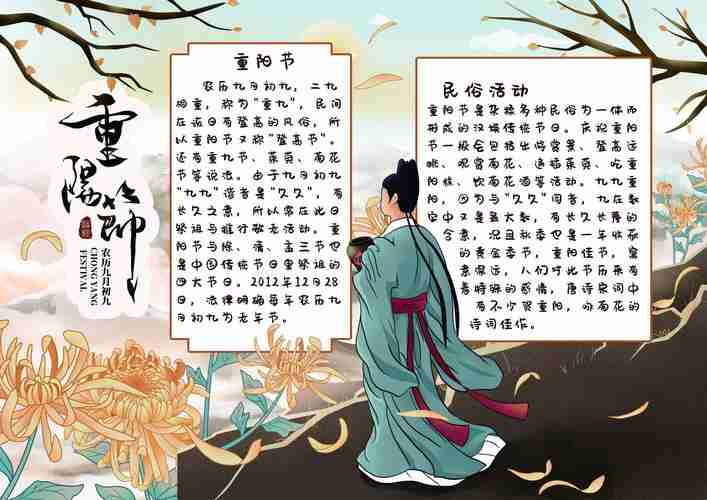 重陽節
农历九月初九
CHONG YANG
FESTIVAL
重阳节
农历九月初九，二九
相重，称为“重九”，民间
在该日有登高的风俗，所
以重阳节又称“登高节”。
还有重九节、茱萸、菊花
节等说法。由于九月初九
“九九”谐音是“久久”，有
长久之意，所以常在此日
祭祖与推行敬老活动。重
阳节与除、清、盂三节也
是中国传统节日里祭祖的
四大节日。2012年12月28
日，法律明确每年农历九
月初九为老年节。
民俗活动
重阳节是杂糅多种民俗为一体而
形成的汉族传统节日。庆祝重阳
节一般会包括出游赏景、登高远
眺、观赏菊花、遍插茱萸、吃重
阳糕、饮菊花酒等活动。九九重
阳，因为与“久久”同音，九在数
字中又是最大数，有长久长寿的
含意，况且秋季也是一年收获
的黄金季节，重阳佳节，寓
意深远，人们对此节历来有
着特殊的感情，唐诗宋词中
有不少贺重阳，咏菊花的
诗词佳作。